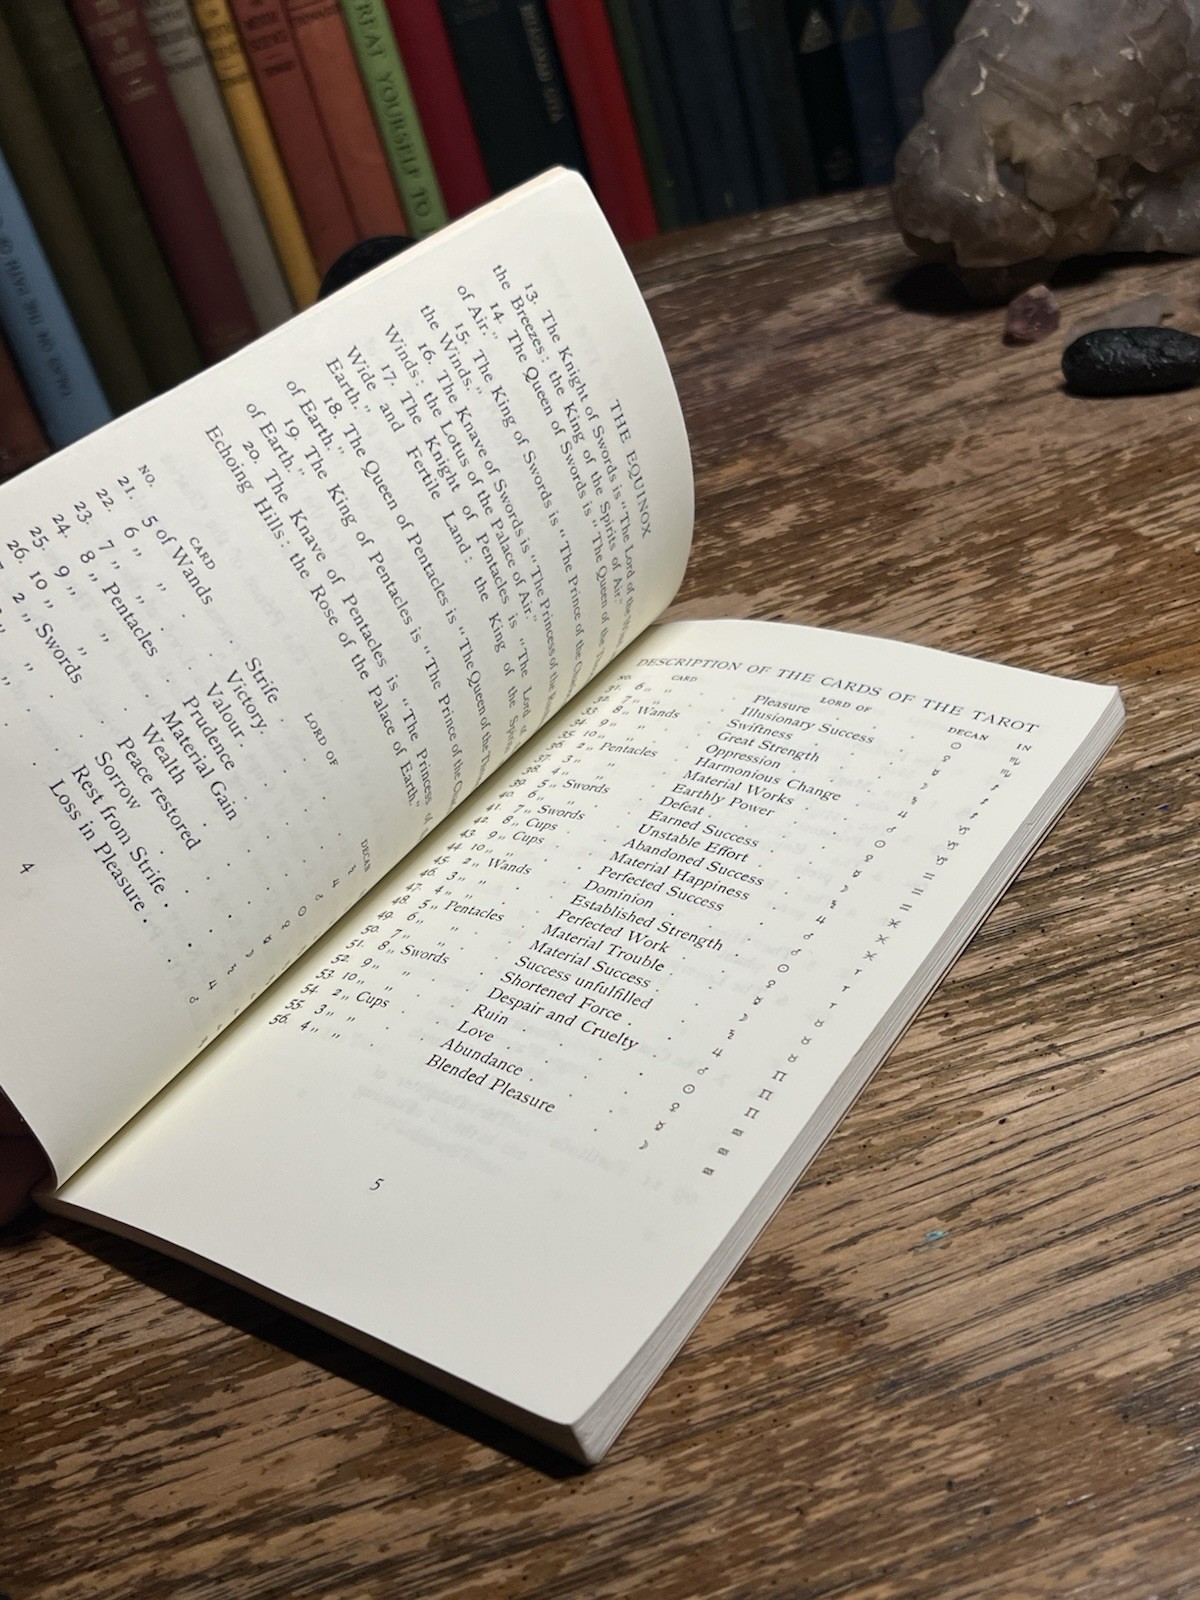 REAT YOURSELF TO
BHAGAVAD GITA
THE EQUINOX
13. The Knight of Swords is "The Lord of the
the Breezes: the King of the Spirits of Air."
14. The Queen of Swords is "The Queen of the
of Air."
15. The King of Swords is "The Prince of the
the Winds."
16. The Knave of Swords is "The Princess of the
Winds: the Lotus of the Palace of Air."
17. The Knight of Pentacles is "The Lord of
Wide and Fertile Land: the King of the
Earth."
18. The Queen of Pentacles is "The Queen of the
of Earth."
19. The King of Pentacles is "The Prince of the
of Earth."
20. The Knave of Pentacles is "The Princess of
Echoing Hills: the Rose of the Palace of Earth."
NO. CARD LORD OF DECAN
21. 5 of Wands . Strife . ♄
22. 6 „ „ . Victory. ♃
23. 7 „ „ . Valour . ♂
24. 8 „ Pentacles . Prudence ☉
25. 9 „ „ . Material Gain ♀
26. 10 „ „ . Wealth ☿
2 „ Swords . Peace restored
„ „ . Sorrow ♄
„ . Rest from Strife . ♃
Loss in Pleasure . ♂
4
DESCRIPTION OF THE CARDS OF THE TAROT
NO. CARD LORD OF DECAN IN
31. 6 „ „ . Pleasure . ☉ ♏
32. 7 „ „ . Illusionary Success . ♀ ♏
33. 8 „ Wands . Swiftness . ☿ ♐
34. 9 „ „ . Great Strength . ☽ ♐
35. 10 „ „ . Oppression . ♄ ♐
36. 2 „ Pentacles . Harmonious Change . ♃ ♑
37. 3 „ „ . Material Works . ♂ ♑
38. 4 „ „ . Earthly Power . ☉ ♑
39. 5 „ Swords . Defeat . ♀ ♒
40. 6 „ „ . Earned Success . ☿ ♒
41. 7 „ Swords . Unstable Effort . ☽ ♒
42. 8 „ Cups . Abandoned Success . ♄ ♓
43. 9 „ Cups . Material Happiness . ♃ ♓
44. 10 „ „ . Perfected Success . ♂ ♓
45. 2 „ Wands . Dominion . ♂ ♈
46. 3 „ „ . Established Strength . ☉ ♈
47. 4 „ „ . Perfected Work . ♀ ♈
48. 5 „ Pentacles . Material Trouble . ☿ ♉
49. 6 „ „ . Material Success . ☽ ♉
50. 7 „ „ . Success unfulfilled . ♄ ♉
51. 8 „ Swords . Shortened Force . ♃ ♊
52. 9 „ „ . Despair and Cruelty . ♂ ♊
53. 10 „ „ . Ruin . ☉ ♊
54. 2 „ Cups . Love . ♀ ♋
55. 3 „ „ . Abundance . ☿ ♋
56. 4 „ „ . Blended Pleasure . ☽ ♋
5